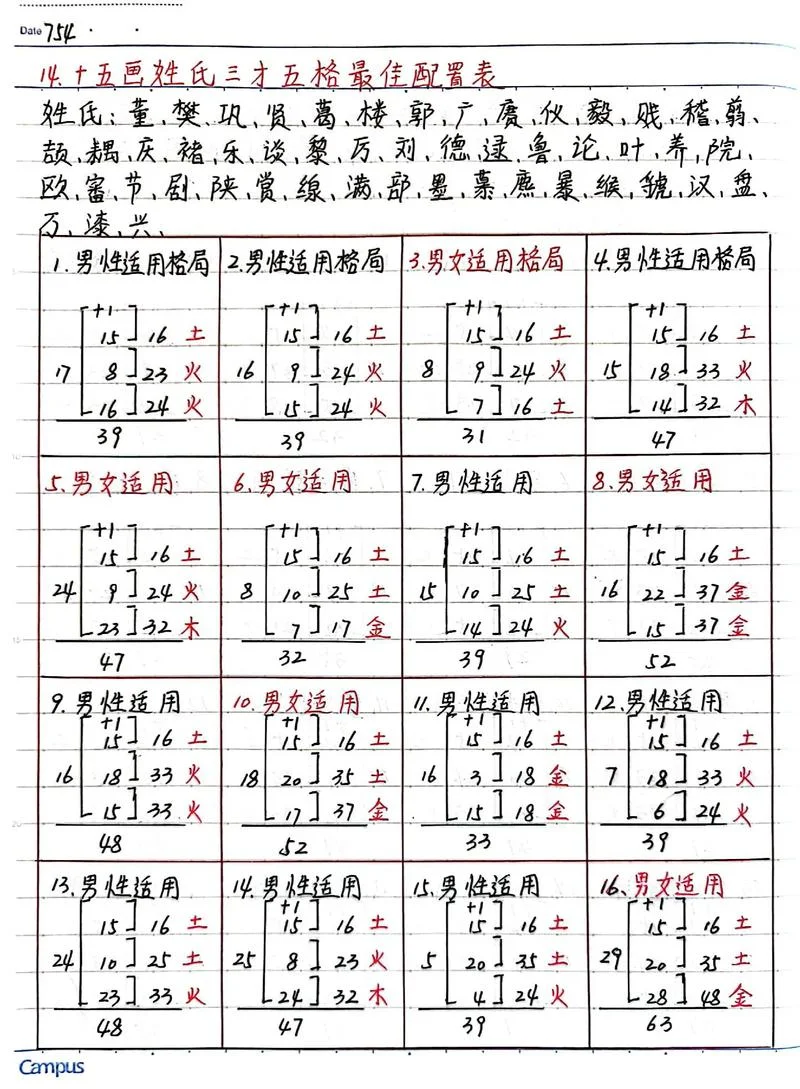 Date 754
14.十五画姓氏三才五格最佳配置表
姓氏:董、樊、巩、贤、葛、楼、郭、广、赓、仪、毅、贱、稽、翦、
颉、耦、庆、褚、乐、谈、黎、厉、刘、德、逯、鲁、论、叶、养、院、
欧、审、节、剧、陕、赏、缐、满、部、墨、慕、麃、暴、缑、虢、汉、盘、
万、漆、兴、
1.男性适用格局 2.男性适用格局 3.男女适用格局 4.男性适用格局
+1 +1 +1
15 16 土 15 16 土 15 16 土 15 16 土
17 8 23 火 16 9 24 火 8 9 24 火 15 18 33 火
16 24 火 15 24 火 7 16 土 14 32 木
39 39 31 47
5.男女适用 6.男女适用 7.男性适用 8.男女适用
+1 +1 +1 +1
15 16 土 15 16 土 15 16 土 15 16 土
24 9 24 火 8 10 25 土 15 10 25 土 16 22 37 金
23 32 木 7 17 金 14 24 火 15 37 金
47 32 39 52
9.男性适用 10.男女适用 11.男性适用 12.男性适用
+1 +1 +1 +1
15 16 土 15 16 土 15 16 土 15 16 土
16 18 33 火 18 20 35 土 16 3 18 金 7 18 33 火
15 33 火 17 37 金 15 18 金 6 24 火
48 52 33 39
13.男性适用 14.男性适用 15.男性适用 16、男女适用
+1 +1 +1
15 16 土 15 16 土 15 16 土 15 16 土
24 10 25 土 25 8 23 火 5 20 35 土 29 20 35 土
23 33 火 24 32 木 4 24 火 28 48 金
48 47 39 63
Campus